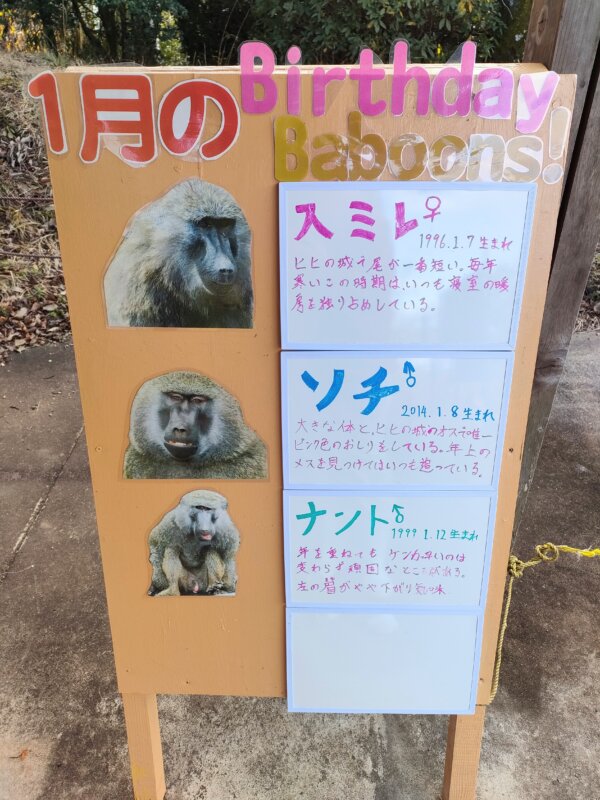 1月の Birthday
Baboons!
スミレ♀
1996.1.7 生まれ
ヒヒの城で尾が一番短い。毎年
寒いこの時期は、いつも寝室の暖
房を独り占めしている。
ソチ♂
2014.1.8 生まれ
大きな体と、ヒヒの城のオスで唯一
ピンク色のおしりをしている。年上の
メスを見つけてはいつも追っている。
ナント♂
1999 1.12 生まれ
年を重ねても ケンカ早いのは
変わらず頑固なところがある。
左の眉がやや下がり気味